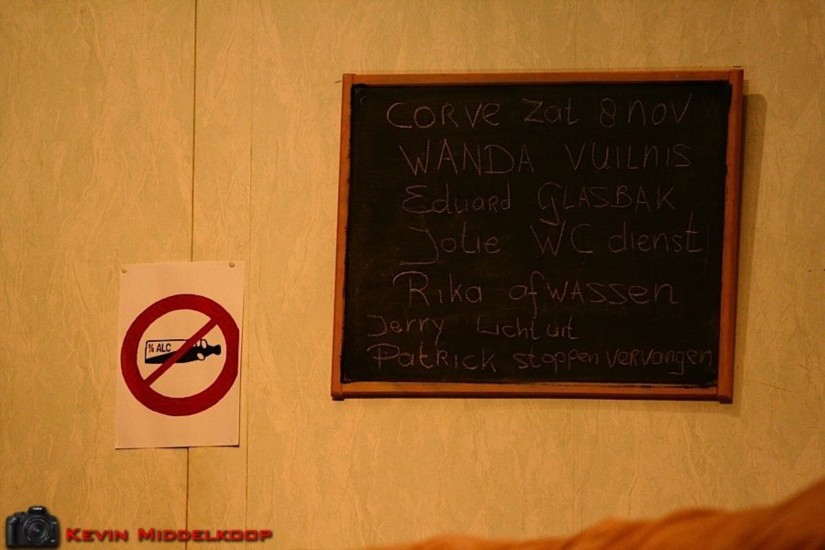 CORVE Zat 8 nov
WANDA VUILNIS
Eduard GLASBAK
Jolie WC dienst
Rika afWASSEN
Jerry Licht uit
PatRICK stoppen vervangen
% ALC
KEVIN MIDDELKOOP